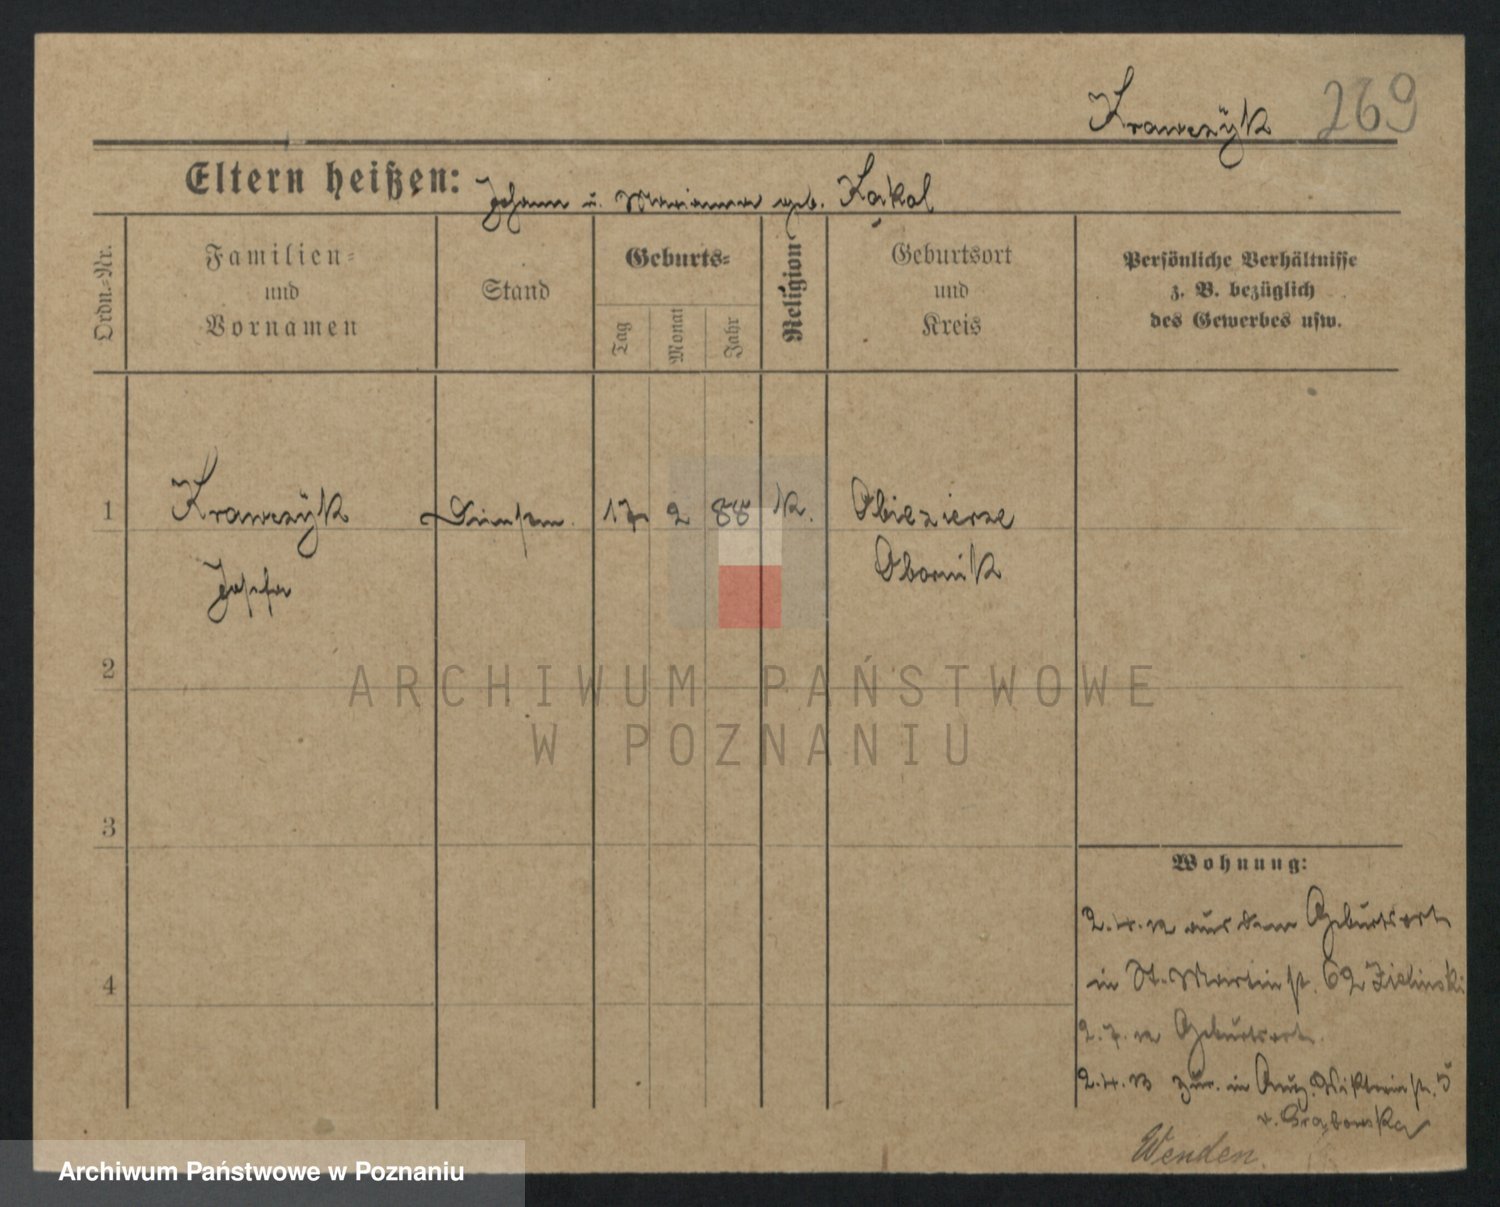 Krawczÿk 269
Eltern heißen: Johann u. Marianna geb. Kąkol
Ordn.-Nr.
Familien-
und
Vornamen
Stand
Geburts-
Tag
Monat
Jahr
Religion
Geburtsort
und
Kreis
Persönliche Verhältnisse
z. B. bezüglich
des Gewerbes usw.
1 Krawczÿk 17 2 88 k. Obiezierze
Josefa Obornik
2
ARCHIWUM PAŃSTWOWE
W POZNANIU
3
Wohnung:
2.4.12 aus dem Geburtsort
4
in St. Martinstr. 62 Zielinski
2.7.12 Geburtsort
2.4.13 zur. in Aug. Viktoriastr. 5
v. Grabowska
Wenden.
Archiwum Państwowe w Poznaniu